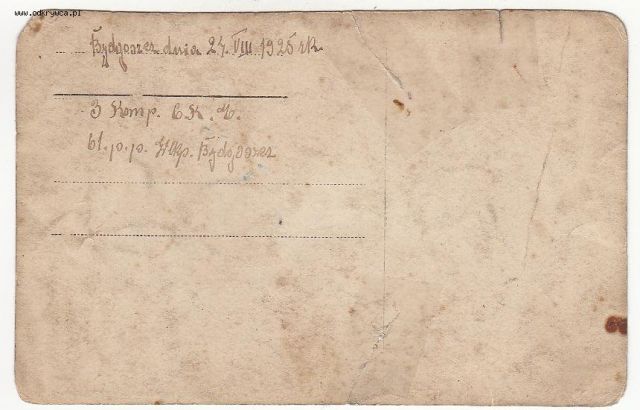 www.odkrywca.pl
Bydgoszcz dnia 24. VIII 1925 rk.
3 Komp. C.K.
61. p. p. Wlkp. Bydgoszcz